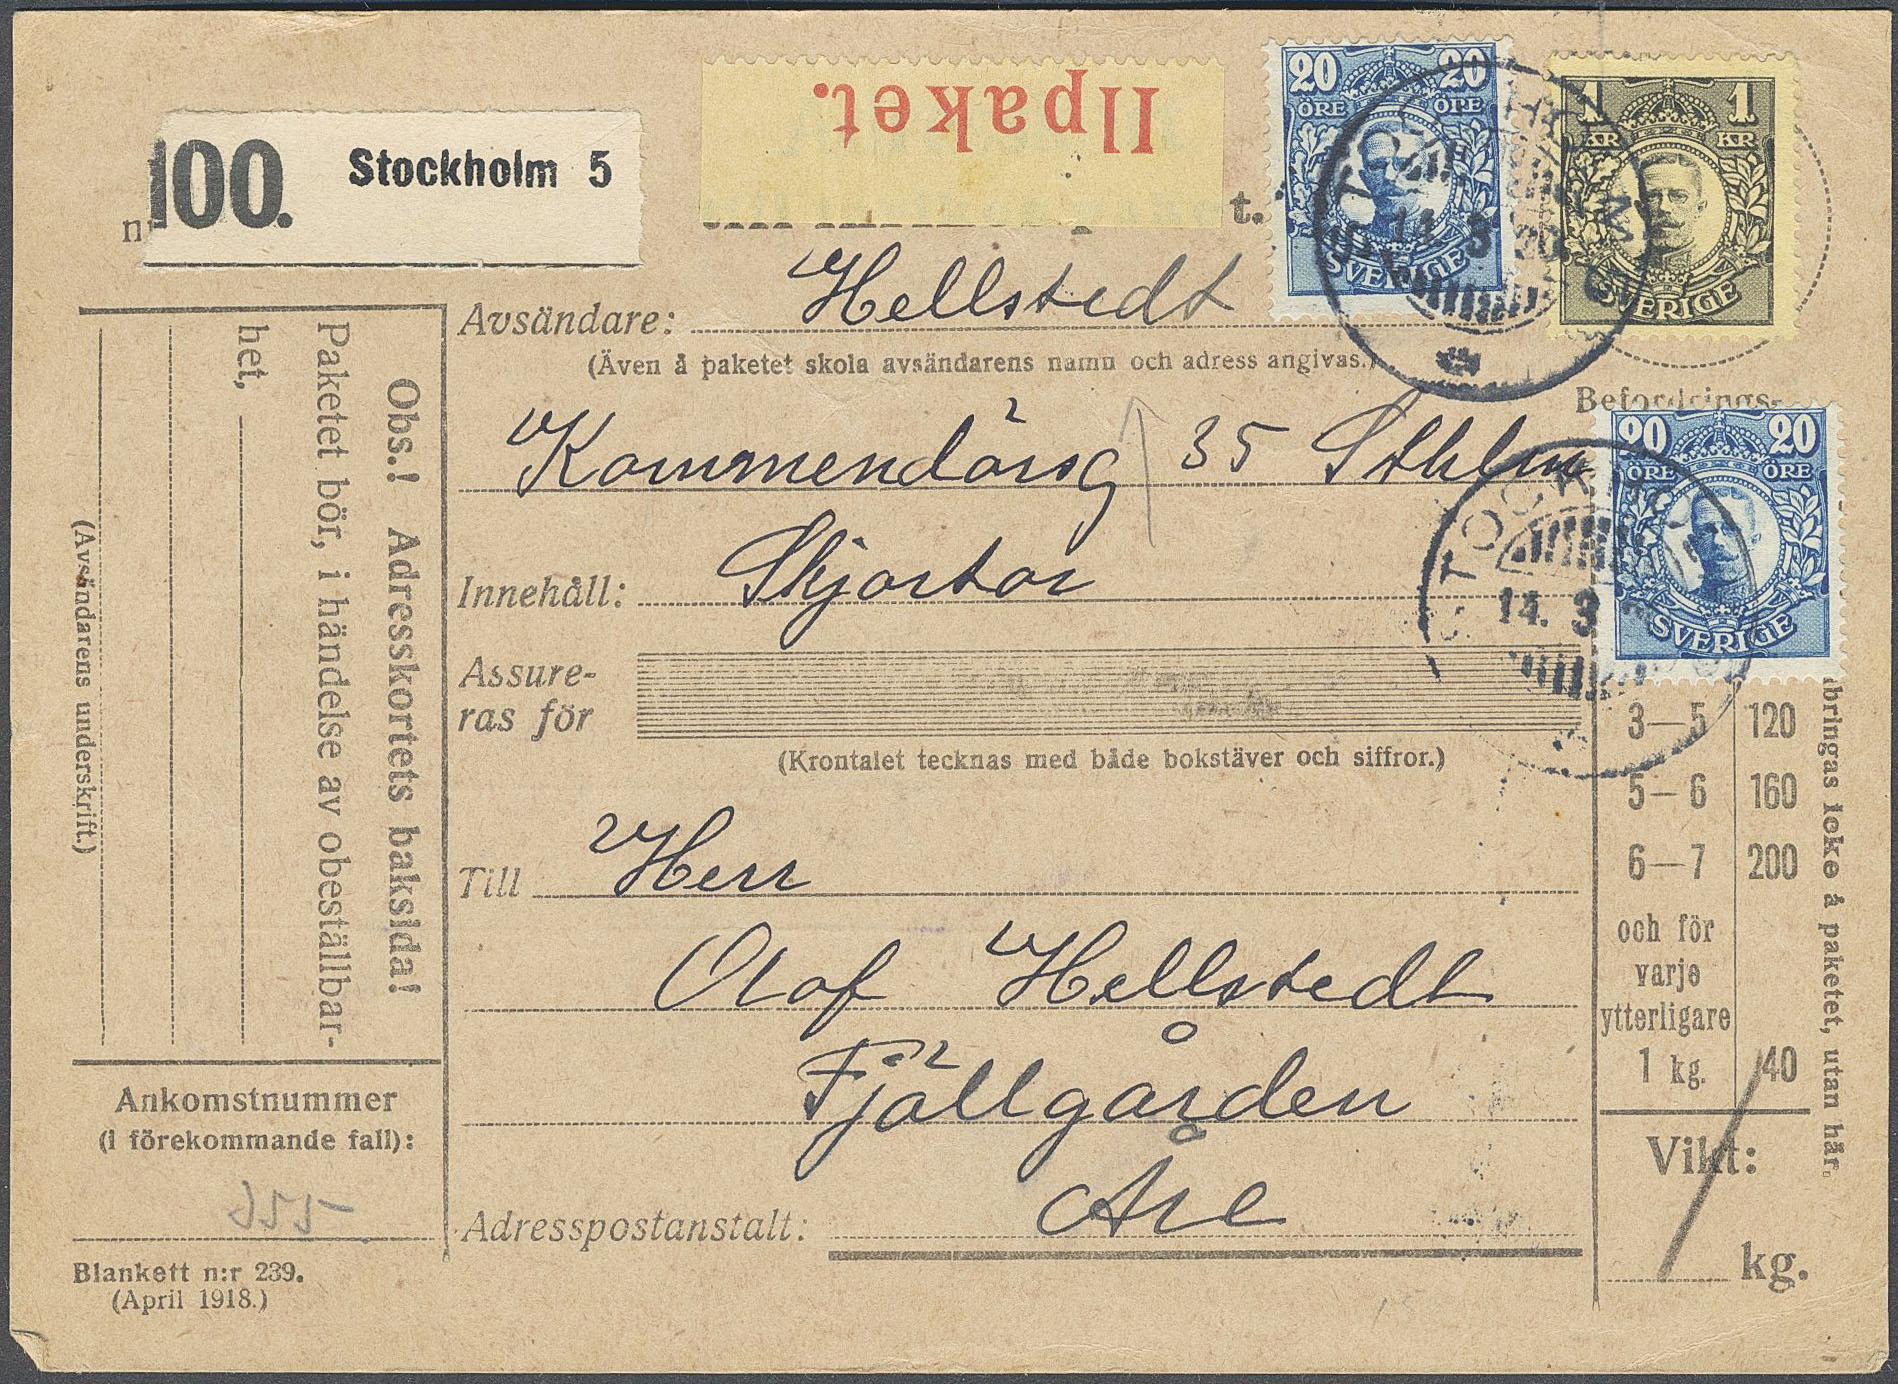 100. Stockholm 5
Ilpaket.
t.
20 20
ÖRE ÖRE
SVERIGE
1 1
KR KR
SVERIGE
Avsändare: Hellstedt
(Även å paketet skola avsändarens namn och adress angivas.)
Kommendörsg 35 Sthlm
Innehåll: Skjortor
Assure-
ras för
(Krontalet tecknas med både bokstäver och siffror.)
Till Herr
Olof Hellstedt
Fjällgården
Åre
Adresspostanstalt:
Befordrings-
20 20
ÖRE ÖRE
SVERIGE
STOCKHOLM
14. 3
STOCKHOLM
14. 3
3—5 120
5—6 160
6—7 200
och för
varje
ytterligare
1 kg. 40
Vikt:
1 kg.
bringas icke å paketet, utan här.
Obs.! Adresskortets baksida!
Paketet bör, i händelse av obeställbar-
het,
(Avsändarens underskrift.)
Ankomstnummer
(i förekommande fall):
Blankett n:r 239.
(April 1918.)